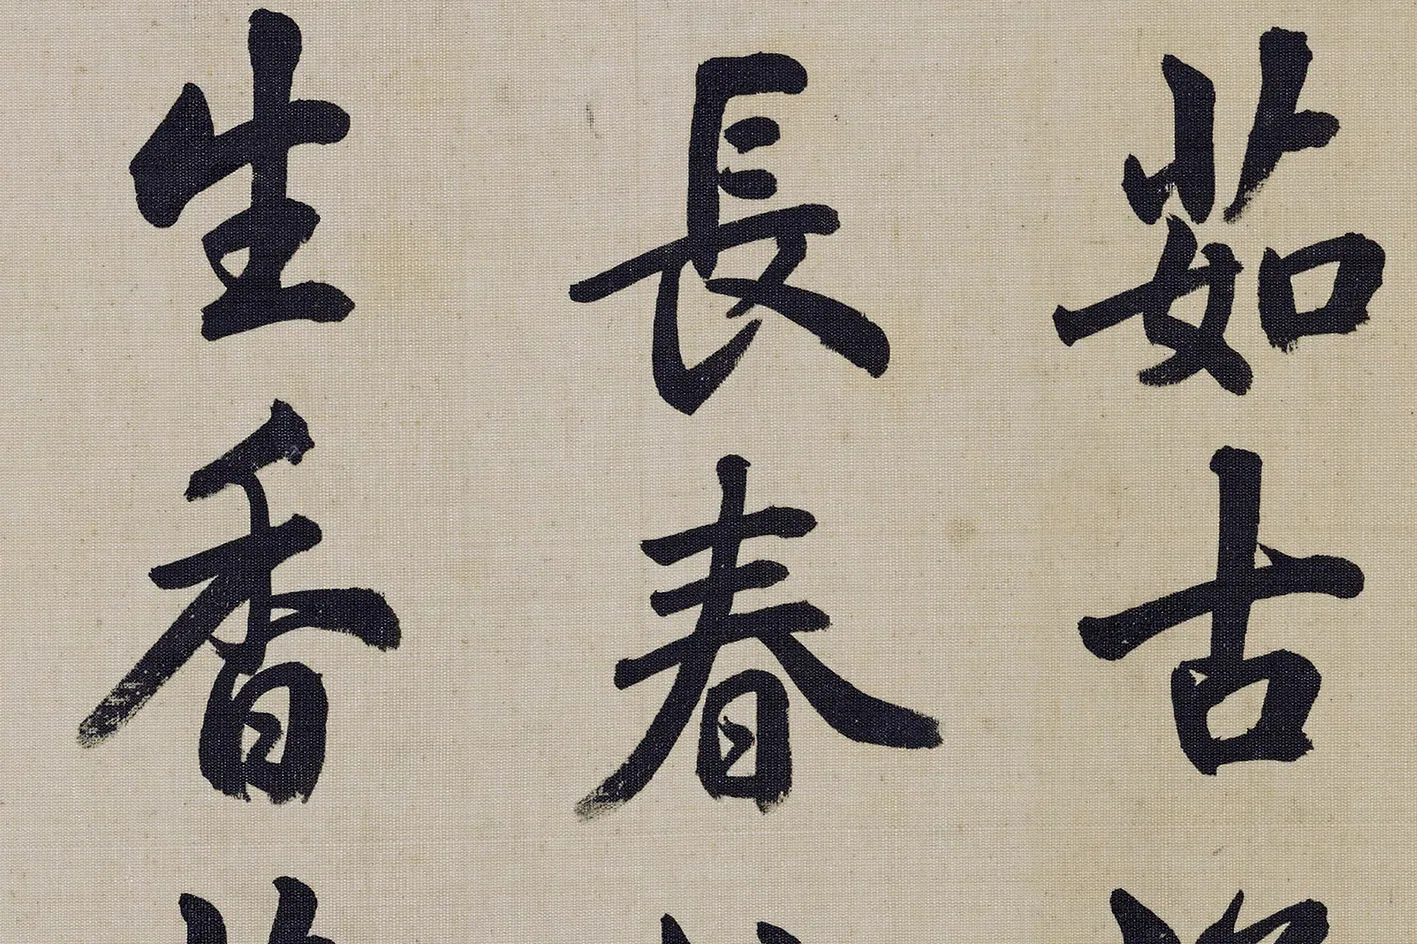 茹古
長春
生香